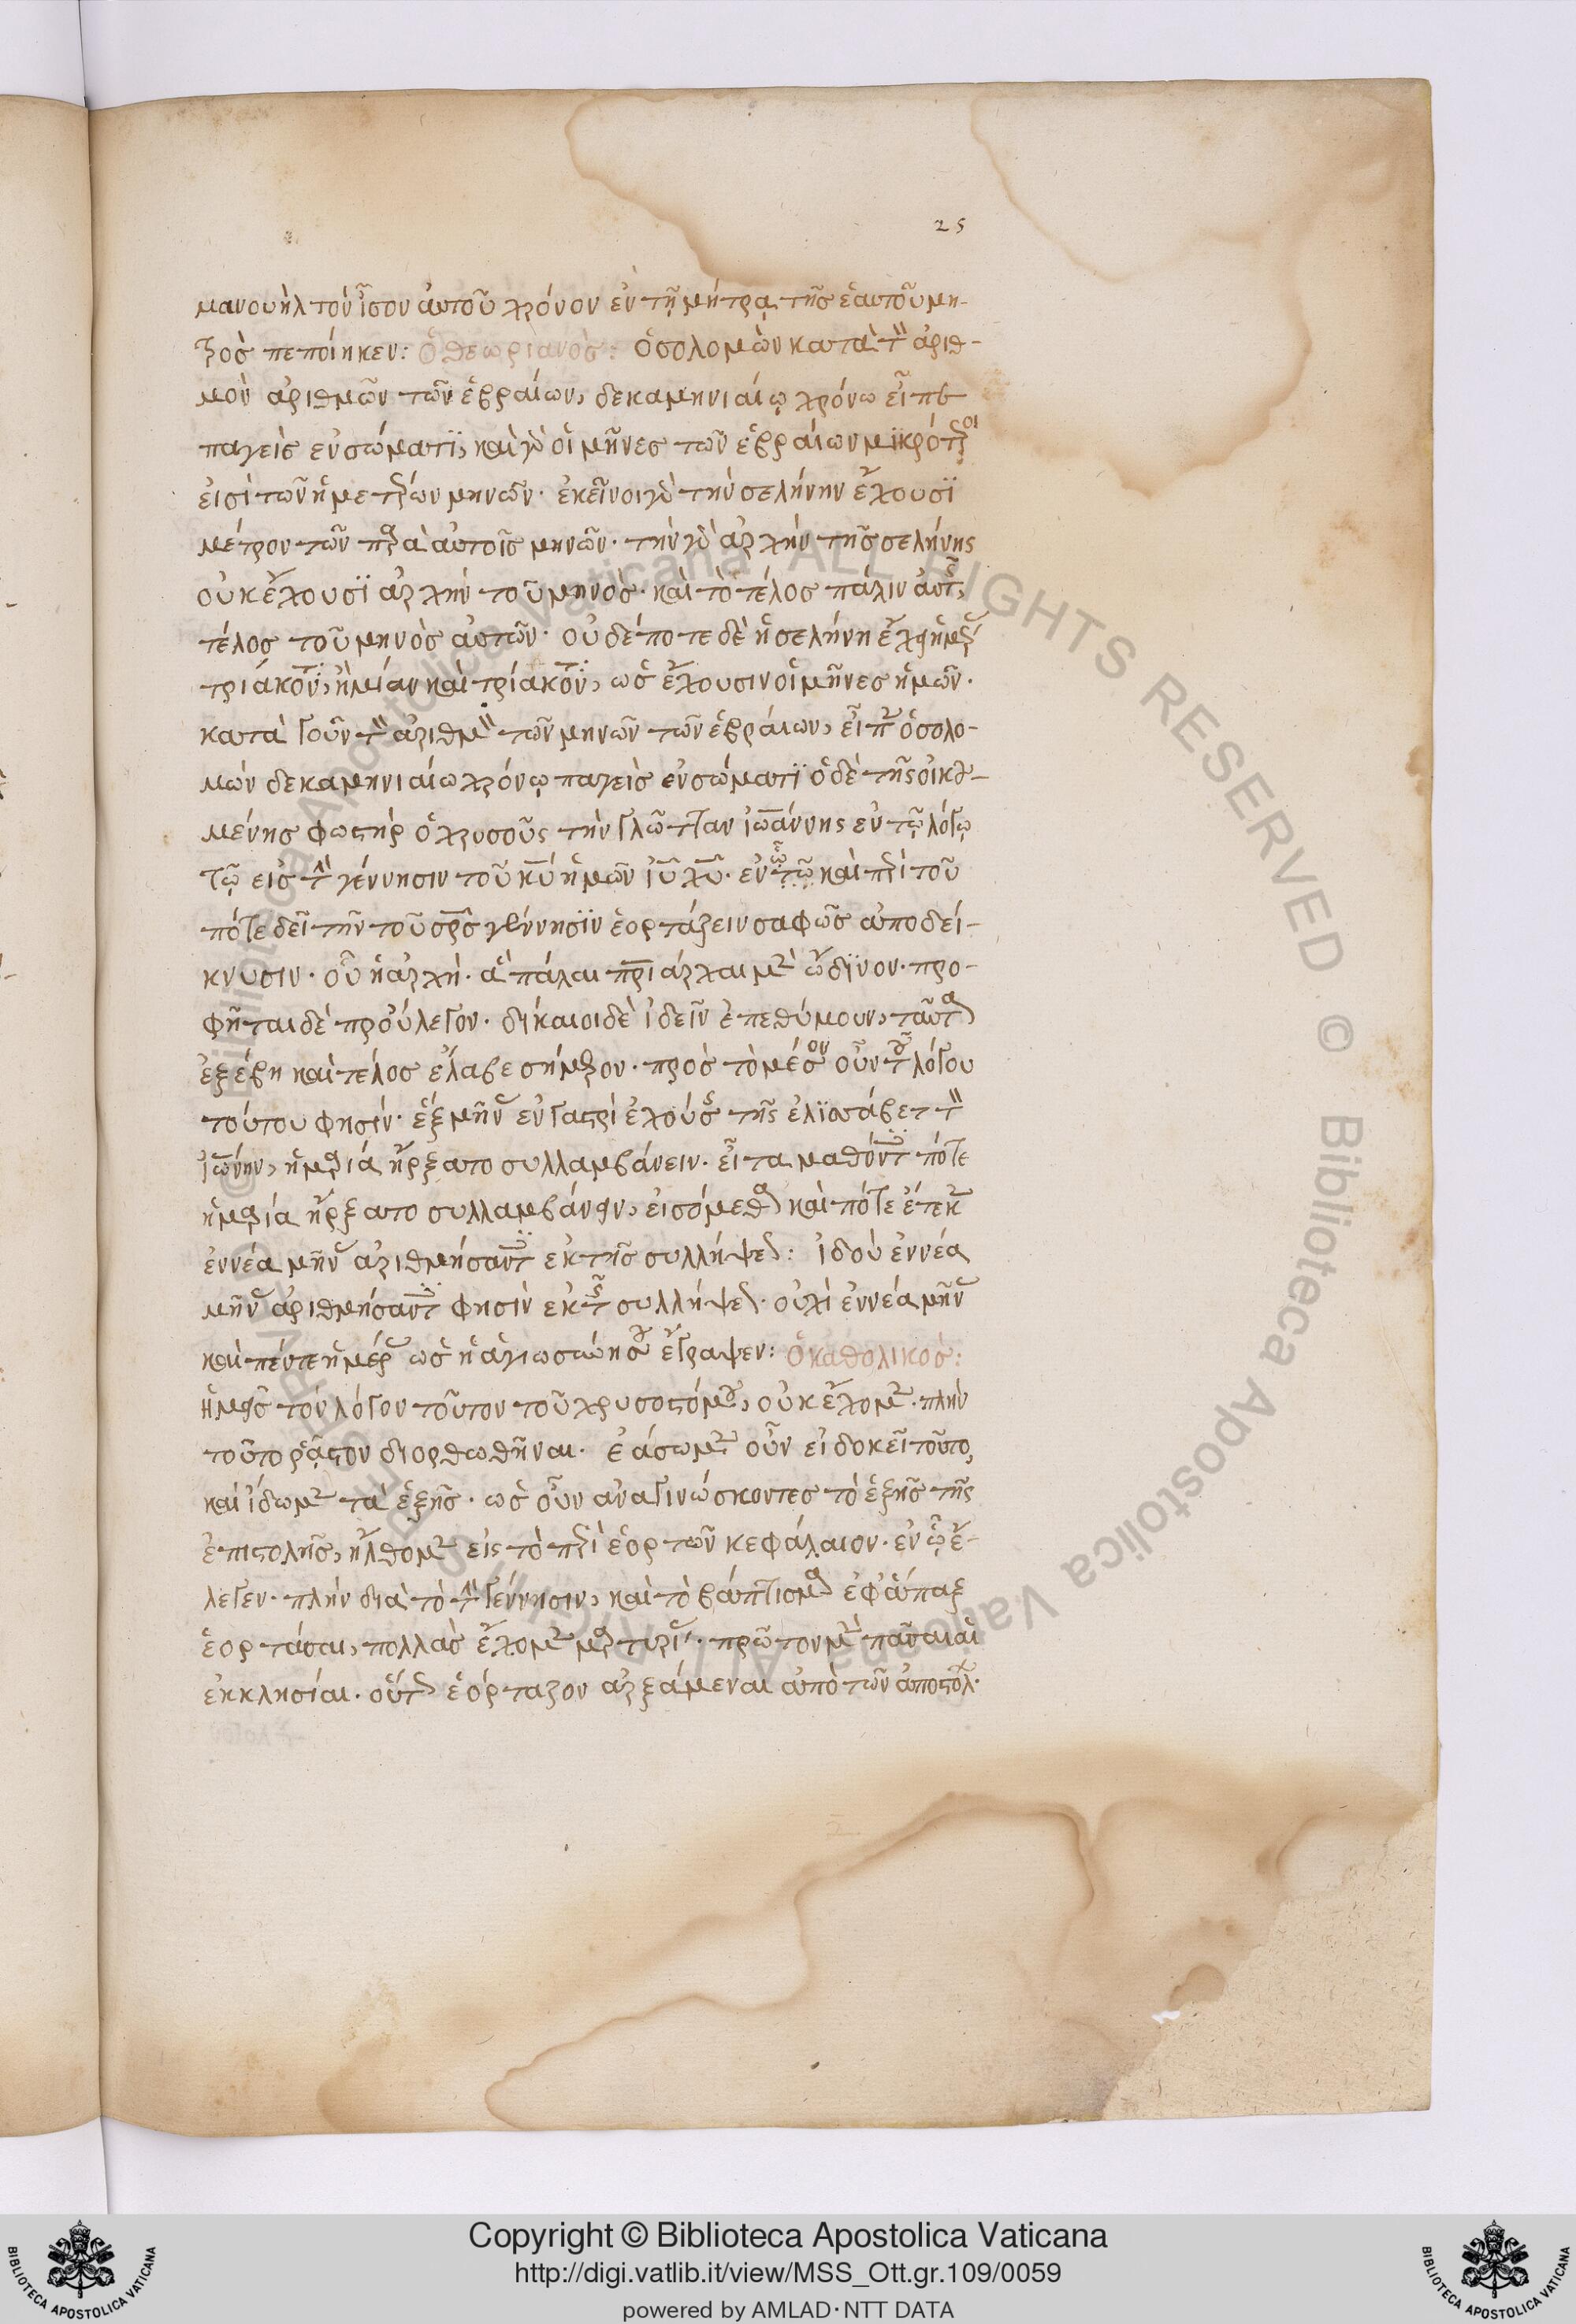 25
μανουὴλ τὸν ἶσον αὐτοῦ χρόνον ἐν τῆ μήτρᾳ τῆς ἑαυτοῦ μη-
τρὸς πεποίηκεν: ὁ θεωριανὸς: ὁ σολομὼν κατὰ τὸν ἀριθ-
μὸν ἀριθμῶν τῶν ἑβραίων, δεκαμηνιαίῳ χρόνω εἶπε
παγεὶς ἐν σώματϊ, καὶ γὰρ οἱ μῆνες τῶν ἑβραίων μϊκρότεροι
εἰσὶ τῶν ἡμετέρων μηνῶν· ἐκεῖνοι γὰρ τὴν σελήνην ἔχουσϊ
μέτρον τῶν παρὰ αὐτοῖς μηνῶν· τὴν γὰρ ἀρχὴν τῆς σελήνης
οὐκ ἔχουσϊ ἀρχὴν τοῦ μηνὸς· καὶ τὸ τέλος πάλιν αὐτῆς,
τέλος τοῦ μηνὸς αὐτῶν· οὐδέποτε δὲ ἡ σελήνη ἔχει ἡμέρας
τριάκοντα, ἢ μίαν καὶ τριάκοντα, ὡς ἔχουσιν οἱ μῆνες ἡμῶν·
κατὰ γοῦν τὸν ἀριθμὸν τῶν μηνῶν τῶν ἑβραίων, εἶπεν ὁ σολο-
μὼν δεκαμηνιαίω χρόνῳ παγεὶς ἐν σώματϊ ὁ δὲ τῆς οἰκου-
μένης φωστὴρ ὁ χρυσοῦς τὴν γλῶτταν ἰωάννης ἐν τῷ λόγῳ
τῷ εἰς τὴν γέννησιν τοῦ κυ ἡμῶν ιυ χυ· ἐν ᾧ τῷ καὶ περὶ τοῦ
πότε δεῖ τὴν τοῦ σρς γέννησϊν ἑορτάζειν σαφῶς ἀποδεί-
κνυσιν· οὗ ἡ ἀρχὴ· ἃ πάλαι πριάρχαι μὲν ὤδϊνον· προ-
φῆται δὲ προὔλεγον· δίκαιοι δὲ ἰδεῖν ἐπεθύμουν, ταῦτα
ἐξέβη καὶ τέλος ἔλαβε σήμερον· πρὸς τὸ μέσον οὖν τοῦ λόγου
τούτου φησὶν· ἓξ μῆνας ἐν γαστρὶ ἐχούσης τῆς ἐλϊσάβετ τὸν
ἰωάννην, ἡ μαρία ἤρξατο συλλαμβάνειν· εἶτα μαθόντες πότε
ἡ μαρία ἤρξατο συλλαμβάνειν, εἰσόμεθα καὶ πότε ἔτεκεν
ἐννέα μῆνας ἀριθμήσαντες ἐκ τῆς συλλήψεως: ἰδοὺ ἐννέα
μῆνας ἀριθμήσαντες φησὶν ἐκ τῆς συλλήψεως· οὐχὶ ἐννέα μῆνας
καὶ πέντε ἡμέρας ὡς ἡ ἁγιωσύνη σου ἔγραψεν: ὁ καθολικὸς:
ἡμεῖς τὸν λόγον τοῦτον τοῦ χρυσοστόμου, οὐκ ἔχομεν· πλὴν
τοῦτο ῥᾷστον διορθωθῆναι· ἐάσωμεν οὖν εἰ δοκεῖ τοῦτο,
καὶ ἴδωμεν τὰ ἑξῆς· ὡς οὖν ἀναγινώσκοντες τὸ ἑξῆς τῆς
ἐπιστολῆς, ἤλθομεν εἰς τὸ περὶ ἑορτῶν κεφάλαιον· ἐν ᾧ ἔ-
λεγεν· πλὴν διὰ τὸ τὴν γέννησιν, καὶ τὸ βάπτισμα ἐφάπαξ
ἑορτάσαι, πολλὰς ἔχομεν μαρτυρίας· πρῶτον μὲν πᾶσαι αἱ
ἐκκλησίαι· οὕτως ἑόρταζον ἀρξάμεναι ἀπὸ τῶν ἀποστόλων·
Copyright © Biblioteca Apostolica Vaticana
http://digi.vatlib.it/view/MSS_Ott.gr.109/0059
powered by AMLAD·NTT DATA
BIBLIOTECA APOSTOLICA VATICANA
BIBLIOTECA APOSTOLICA VATICANA